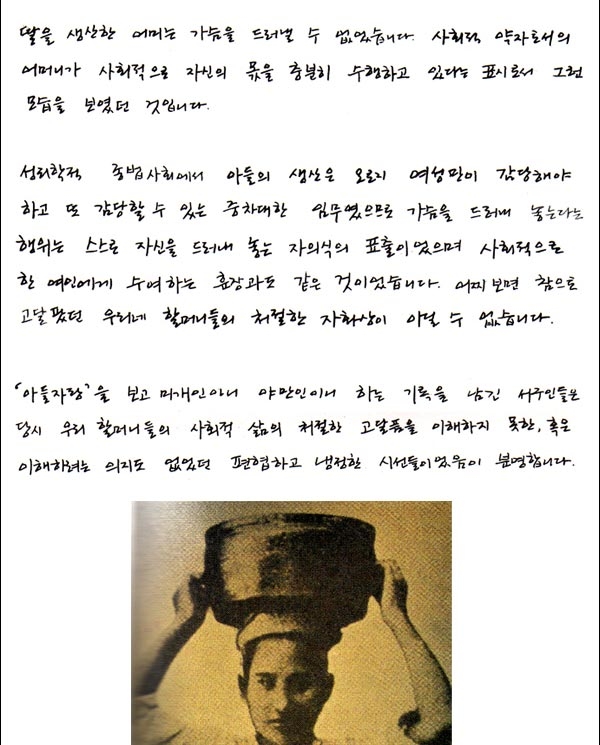 딸을 생산한 어머는 가슴을 드러낼 수 없었습니다. 사회적 약자로서의
어머니가 사회적으로 자신의 몫을 충분히 수행하고 있다는 표시로서 그런
모습을 보였던 것입니다.
성리학적 종법사회에서 아들의 생산은 오로지 여성만이 감당해야
하고 또 감당할 수 있는 중차대한 임무였으므로 가슴을 드러내 놓는다는
행위는 스스로 자신을 드러내 놓는 자의식의 표출이었으며 사회적으로
한 여인에게 수여하는 훈장과도 같은 것이었습니다. 어찌보면 참으로
고달팠던 우리네 할머니들의 처절한 자화상이 아닐 수 없습니다.
'아들자랑'을 보고 미개인이니 야만인이니 하는 기록을 남긴 서구인들은
당시 우리 할머니들의 사회적 삶의 처절한 고달픔을 이해하지 못한, 혹은
이해하려는 의지도 없었던 편협하고 냉정한 시선들이었음이 분명합니다.